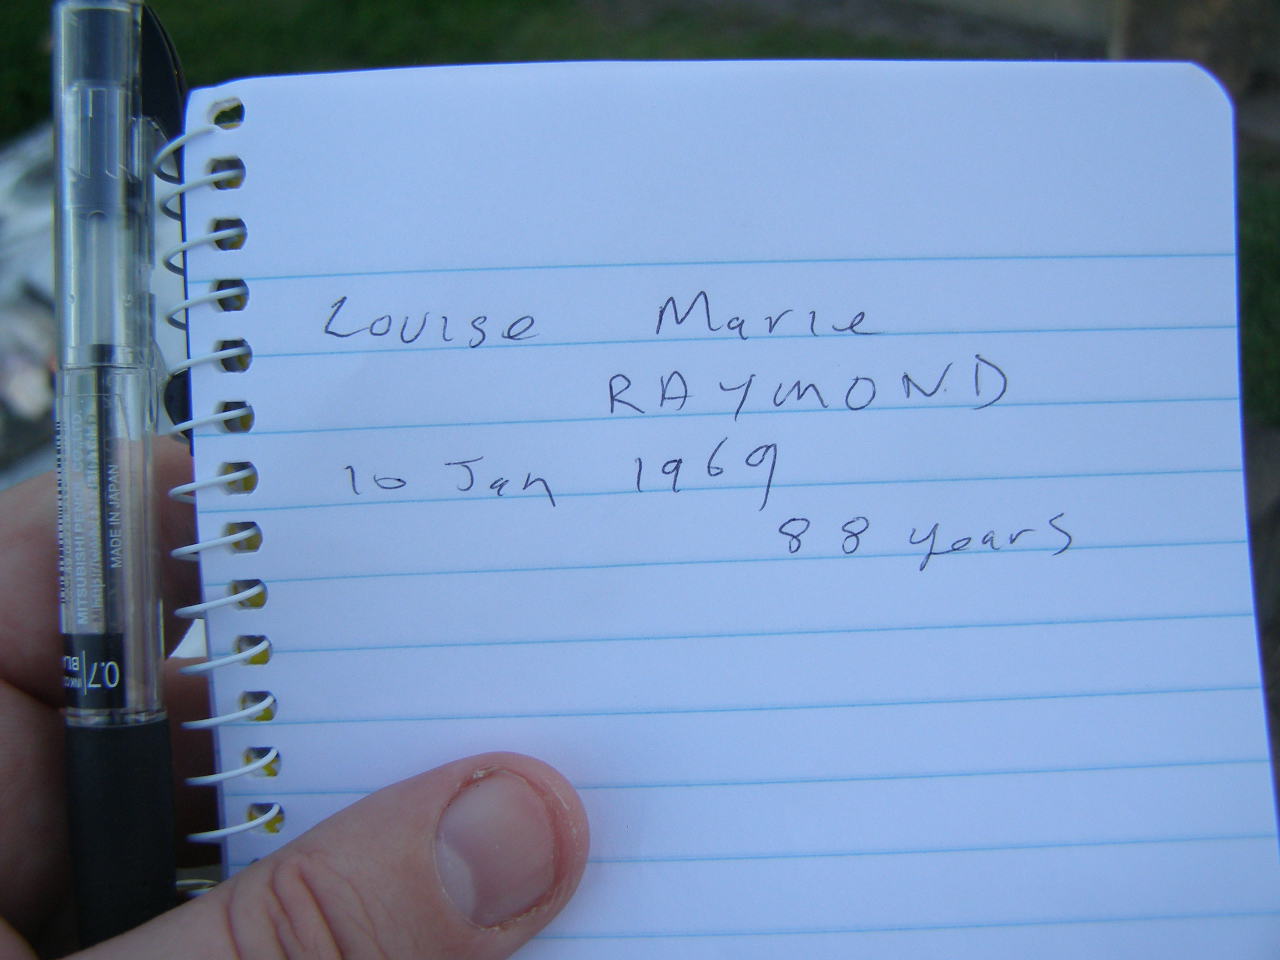 Louise Marie
RAYMOND
10 Jan 1969
88 years
MITSUBISHI PENCIL CO., LTD.
MADE IN JAPAN
0.7